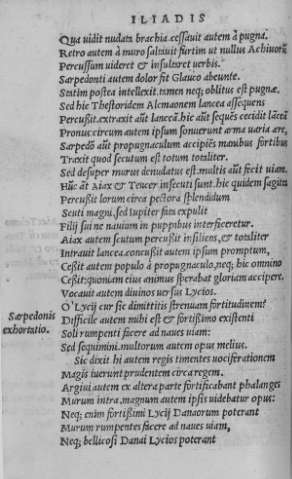 ILIADIS
Qua uidit nudata brachia. cessauit autem à pugna.
Retro autem à muro saltauit furtim ut nullus Achiuorũ
Percussum uideret & insularet uerbis.
Sarpedonti autem dolor fit Glauco abeunte.
Statim postea intellexit. tamen neq; oblitus est pugnæ.
Sed hic Thestoridem Alcmaonem lancea assequens
Percußit. extraxit aũt lanceã. hic aũt sequẽs cecidit lãceã
Pronus: circum autem ipsum sonuerunt arma uaria ære,
Sarpedõ aũt propugnaculum accipiẽs manibus fortibus
Traxit quod secutum est totum totaliter.
Sed desuper murus denudatus est. multis aũt fecit uiam.
Hũc aũt Aiax & Teucer insecuti sunt. hic quidem sagitta
Percußit lorum circa pectora splendidum
Scuti magni, sed Iupiter fata expulit
Filij sui ne nauium in puppibus interficeretur.
Aiax autem scutum percußit insiliens, & totaliter
Intrauit lancea. concußit autem ipsum promptum,
Ceßit autem populo à propugnaculo, neq; hic omnino
Ceßit: quoniam eius animus sperabat gloriam accipere.
Vocauit autem diuinos uersus Lycios.
O' Lycij cur sic dimittitis strenuam fortitudinem?
Sarpedonis
exhortatio.
Difficile autem mihi est & fortißimo existenti
Soli rumpenti facere ad naues uiam:
Sed sequimini. multorum autem opus melius.
Sic dixit hi autem regis timentes uociferationem
Magis iuerunt prudentem circa regem.
Argiui autem ex altera parte fortificabant phalanges
Murum intra. magnum autem ipsis uidebatur opus:
Neq; enim fortißimi Lycij Danaorum poterant
Murum rumpentes facere ad naues uiam,
Neq; bellicosi Danai Lycios poterant